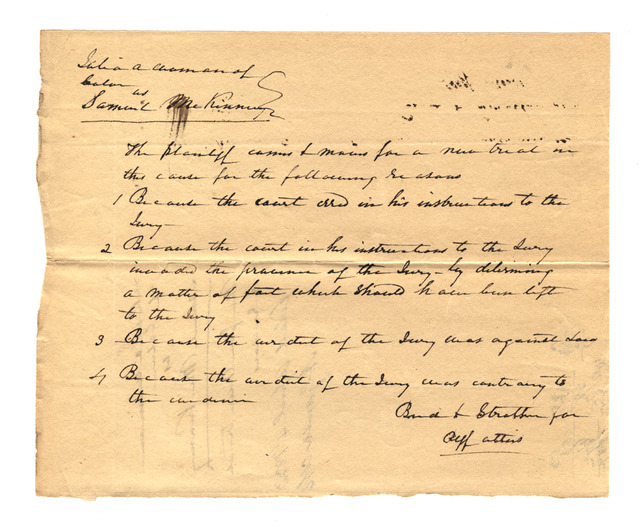 Julia a woman of
Color
as
Samuel McKinney
The Plaintiff comes & moves for a new trial in
this cause for the following reasons
1 Because the court erred in his instructions to the
Jury—
2 Because the court in his instructions to the Jury
invaded the province of the Jury—by determining
a matter of fact which should have been left
to the Jury
3 Because the verdict of the Jury was against Law
4 Because the verdict of the Jury was contrary to
the evidence
& Strother for
Plff attys